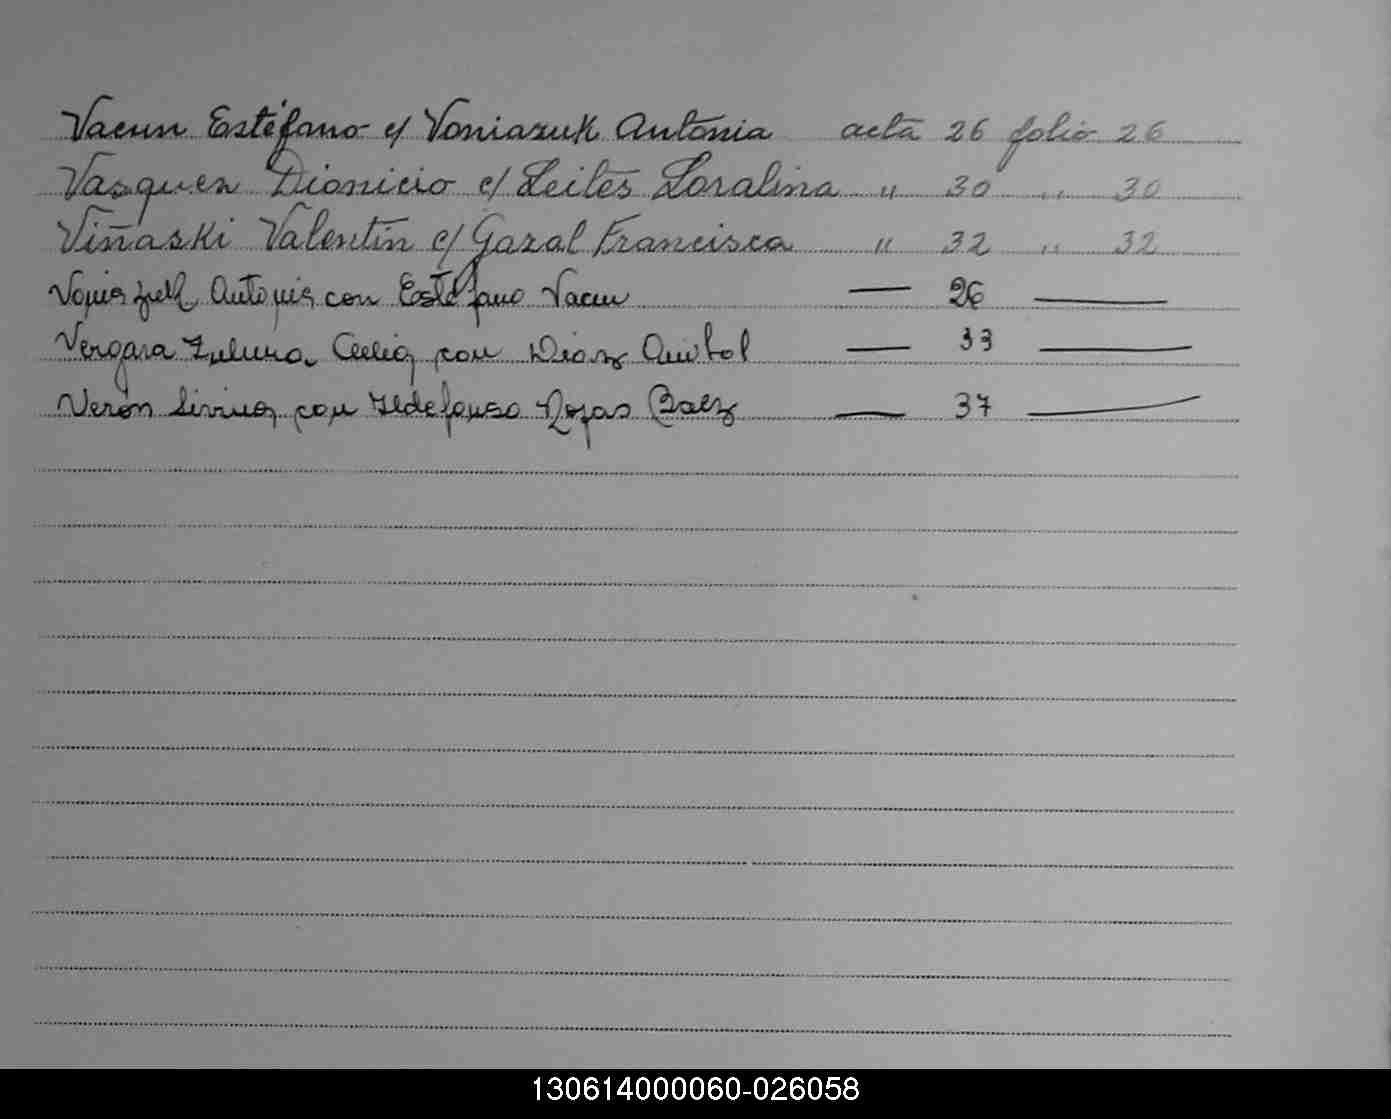 Vacun Estéfano c/ Voniazuk Antonia acta 26 folio 26
Vasquez Dionicio c/ Leites Loralina " 30 " 30
Viñaski Valentín c/ Gazal Francisca " 32 " 32
Antonia con Estéfano Vacun — 26 —
Vergara Zulma Celia con Diaz Anibal — 33 —
Verón Sirina con Ildefonso Rojas Baez — 37 —
130614000060-026058